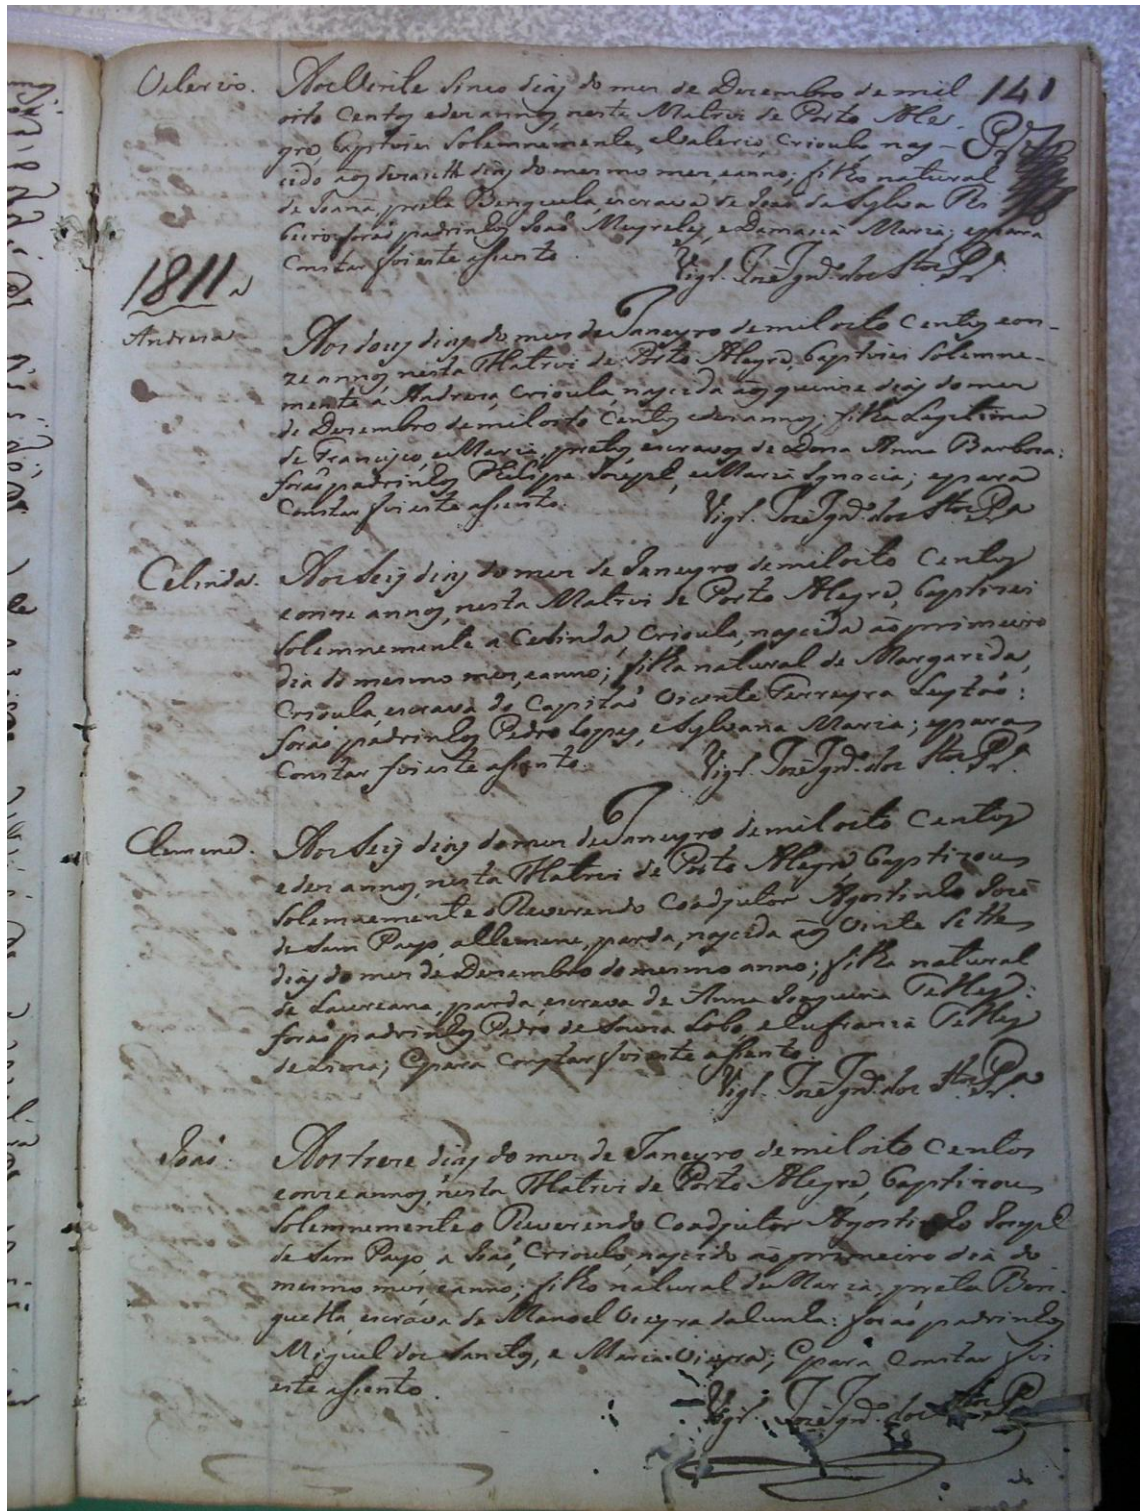 141
Valerio. Aos Vinte Sinco dias do mes de Dezembro de mil
oito Centos e dez annos, nesta Matris de Porto Ale-
gre, baptizei Solemnemente, a Valerio, Crioulo, nas-
cido aos dezasette dias do mesmo mes, e anno; filho natural
de Joana, preta Benguela, escrava de Joaõ da Sylva Ri
beiro: foraõ padrinhos Joaõ Meyreles, e Damazia Maria; e para
Constar fiz este assento.
Vigr. Joze Ign.º dos Stos Pr.ª
1811
Andreza Aos dous dias do mes de Janeyro de mil oito Centos e on-
ze annos, nesta Matris de Porto Alegre, baptizei Solemne-
mente a Andreza, Crioula, nascida aos quinze dias do mes
de Dezembro de mil oito Centos e dez annos; filha Legitima
de Francisco, e Maria, pretos, escravos de Dona Anna Barboza:
foraõ padrinhos Phelipe Joseph, e Maria Ignacia; e para
Constar fiz este assento.
Vigr. Joze Ign.º dos Stos Pr.ª
Celinda. Aos Seis dias do mes de Janeyro de mil oito Centos
e onze annos, nesta Matris de Porto Alegre, baptizei
Solemnemente a Celinda, Crioula, nascida ao primeiro
dia do mesmo mes, e anno; filha natural de Margarida,
Crioula, escrava do Capitaõ Vicente Ferreyra Leytaõ:
foraõ padrinhos Pedro Lopes, e Sylvana Maria; e para
Constar fiz este assento.
Vigr. Joze Ign.º dos Stos Pr.ª
Clemene. Aos Seis dias do mes de Janeyro de mil oito Centos
e dez annos, nesta Matris de Porto Alegre, baptizou
Solemnemente o Reverendo Coadjutor Agostinho Jozé
de Sam Payo, a Clemene, parda, nascida aos Vinte Sette
dias do mes de Dezembro do mesmo anno; filha natural
de Laureana, parda, escrava de Anna Joaquina Telles:
foraõ padrinhos Pedro de Souza Lobo, e Eufrazia Telles
de Lima; e para Constar fiz este assento.
Vigr. Joze Ign.º dos Stos Pr.ª
Joaõ. Aos treze dias do mes de Janeyro de mil oito Centos
e onze annos, nesta Matris de Porto Alegre, baptizou
Solemnemente o Reverendo Coadjutor Agostinho Joseph
de Sam Payo, a Joaõ, Crioulo, nascido ao primeiro dia do
mesmo mes, e anno; filho natural de Maria, preta Ben-
guella, escrava de Manoel Vieyra da Cunha: foraõ padrinhos
Miguel dos Sanctos, e Maria Vieyra; e para Constar fiz
este assento.
Vigr. Joze Ign.º dos Stos Pr.ª